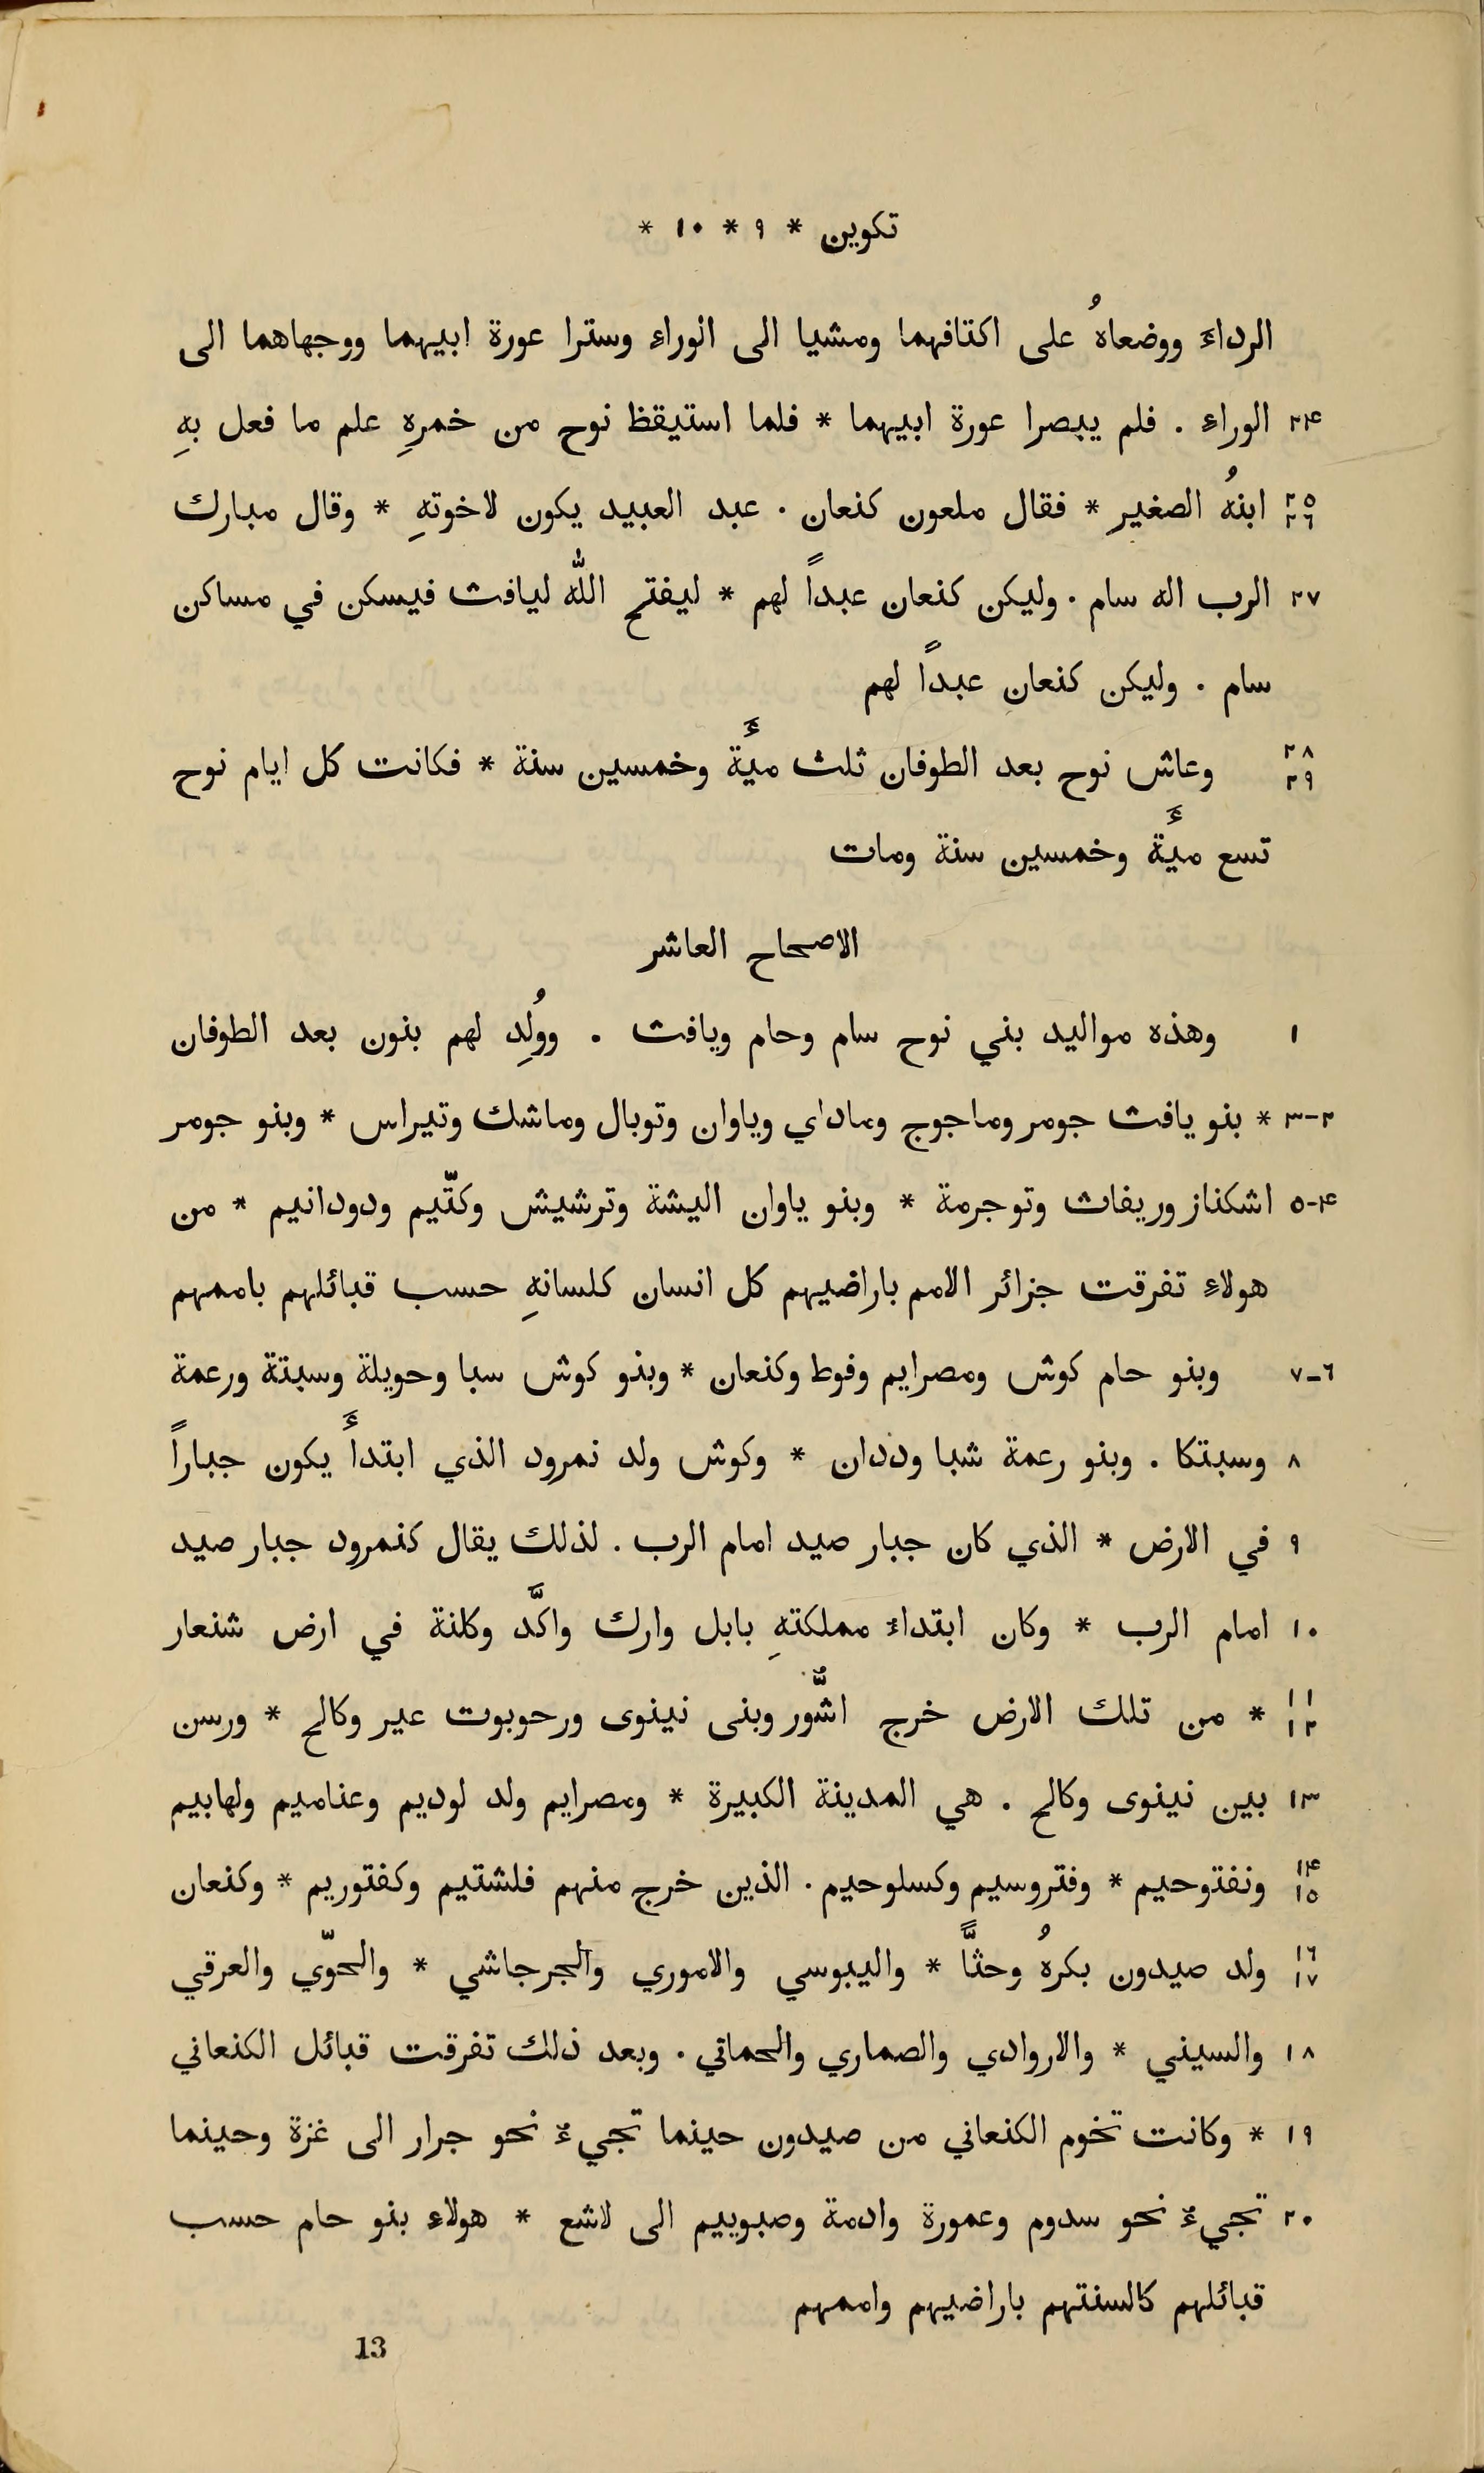 تكوين * ٩ * ١٠ *
الرداءَ ووضعاهُ على اكتافهما ومشيا الى الوراءِ وسترا عورة ابيهما ووجهاهما الى
٢٤ الوراءِ . فلم يبصرا عورة ابيهما * فلما استيقظ نوح من خمرهِ علم ما فعل بهِ
٢٥ ٢٦ ابنهُ الصغير * فقال ملعون كنعان . عبد العبيد يكون لاخوتهِ * وقال مبارك
٢٧ الرب اله سام . وليكن كنعان عبداً لهم * ليفتح الله ليافث فيسكن في مساكن
سام . وليكن كنعان عبداً لهم
٢٨ ٢٩ وعاش نوح بعد الطوفان ثلث مئَة وخمسين سنة * فكانت كل ايام نوح
تسع مئَة وخمسين سنة ومات
الاصحاح العاشر
١ وهذه مواليد بني نوح سام وحام ويافث . ووُلِد لهم بنون بعد الطوفان
٢-٣ * بنو يافث جومر وماجوج وماداي وياوان وتوبال وماشك وتيراس * وبنو جومر
٤-٥ اشكناز وريفاث وتوجرمة * وبنو ياوان اليشة وترشيش وكتّيم ودودانيم * من
هولاءِ تفرقت جزائر الامم باراضيهم كل انسان كلسانهِ حسب قبائلهم باممهم
٦-٧ وبنو حام كوش ومصرايم وفوط وكنعان * وبنو كوش سبا وحويلة وسبتة ورعمة
٨ وسبتكا . وبنو رعمة شبا وددان * وكوش ولد نمرود الذي ابتدأَ يكون جباراً
٩ في الارض * الذي كان جبار صيد امام الرب . لذلك يقال كنمرود جبار صيد
١٠ امام الرب * وكان ابتداءَ مملكتهِ بابل وارك واكَّد وكلنة في ارض شنعار
١١ ١٢ * من تلك الارض خرج اشُّور وبنى نينوى ورحوبوت عير وكالح * ورسن
١٣ بين نينوى وكالح . هي المدينة الكبيرة * ومصرايم ولد لوديم وعناميم ولهابيم
١٤ ١٥ ونفتوحيم * وفتروسيم وكسلوحيم . الذين خرج منهم فلشتيم وكفتوريم * وكنعان
١٦ ١٧ ولد صيدون بكرهُ وحثًّا * واليبوسي والاموري والجرجاشي * والحوّي والعرقي
١٨ والسيني * والاروادي والصماري والحماتي . وبعد ذلك تفرقت قبائل الكنعاني
١٩ * وكانت تخوم الكنعاني من صيدون حينما تجيءُ نحو جرار الى غزة وحينما
٢٠ تجيءُ نحو سدوم وعمورة وادمة وصبوييم الى لاشع * هولاءِ بنو حام حسب
قبائلهم كالسنتهم باراضيهم واممهم
13